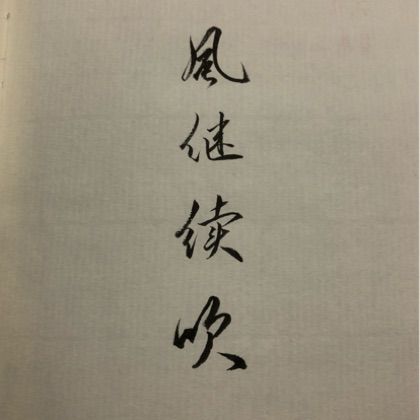 風继续吹